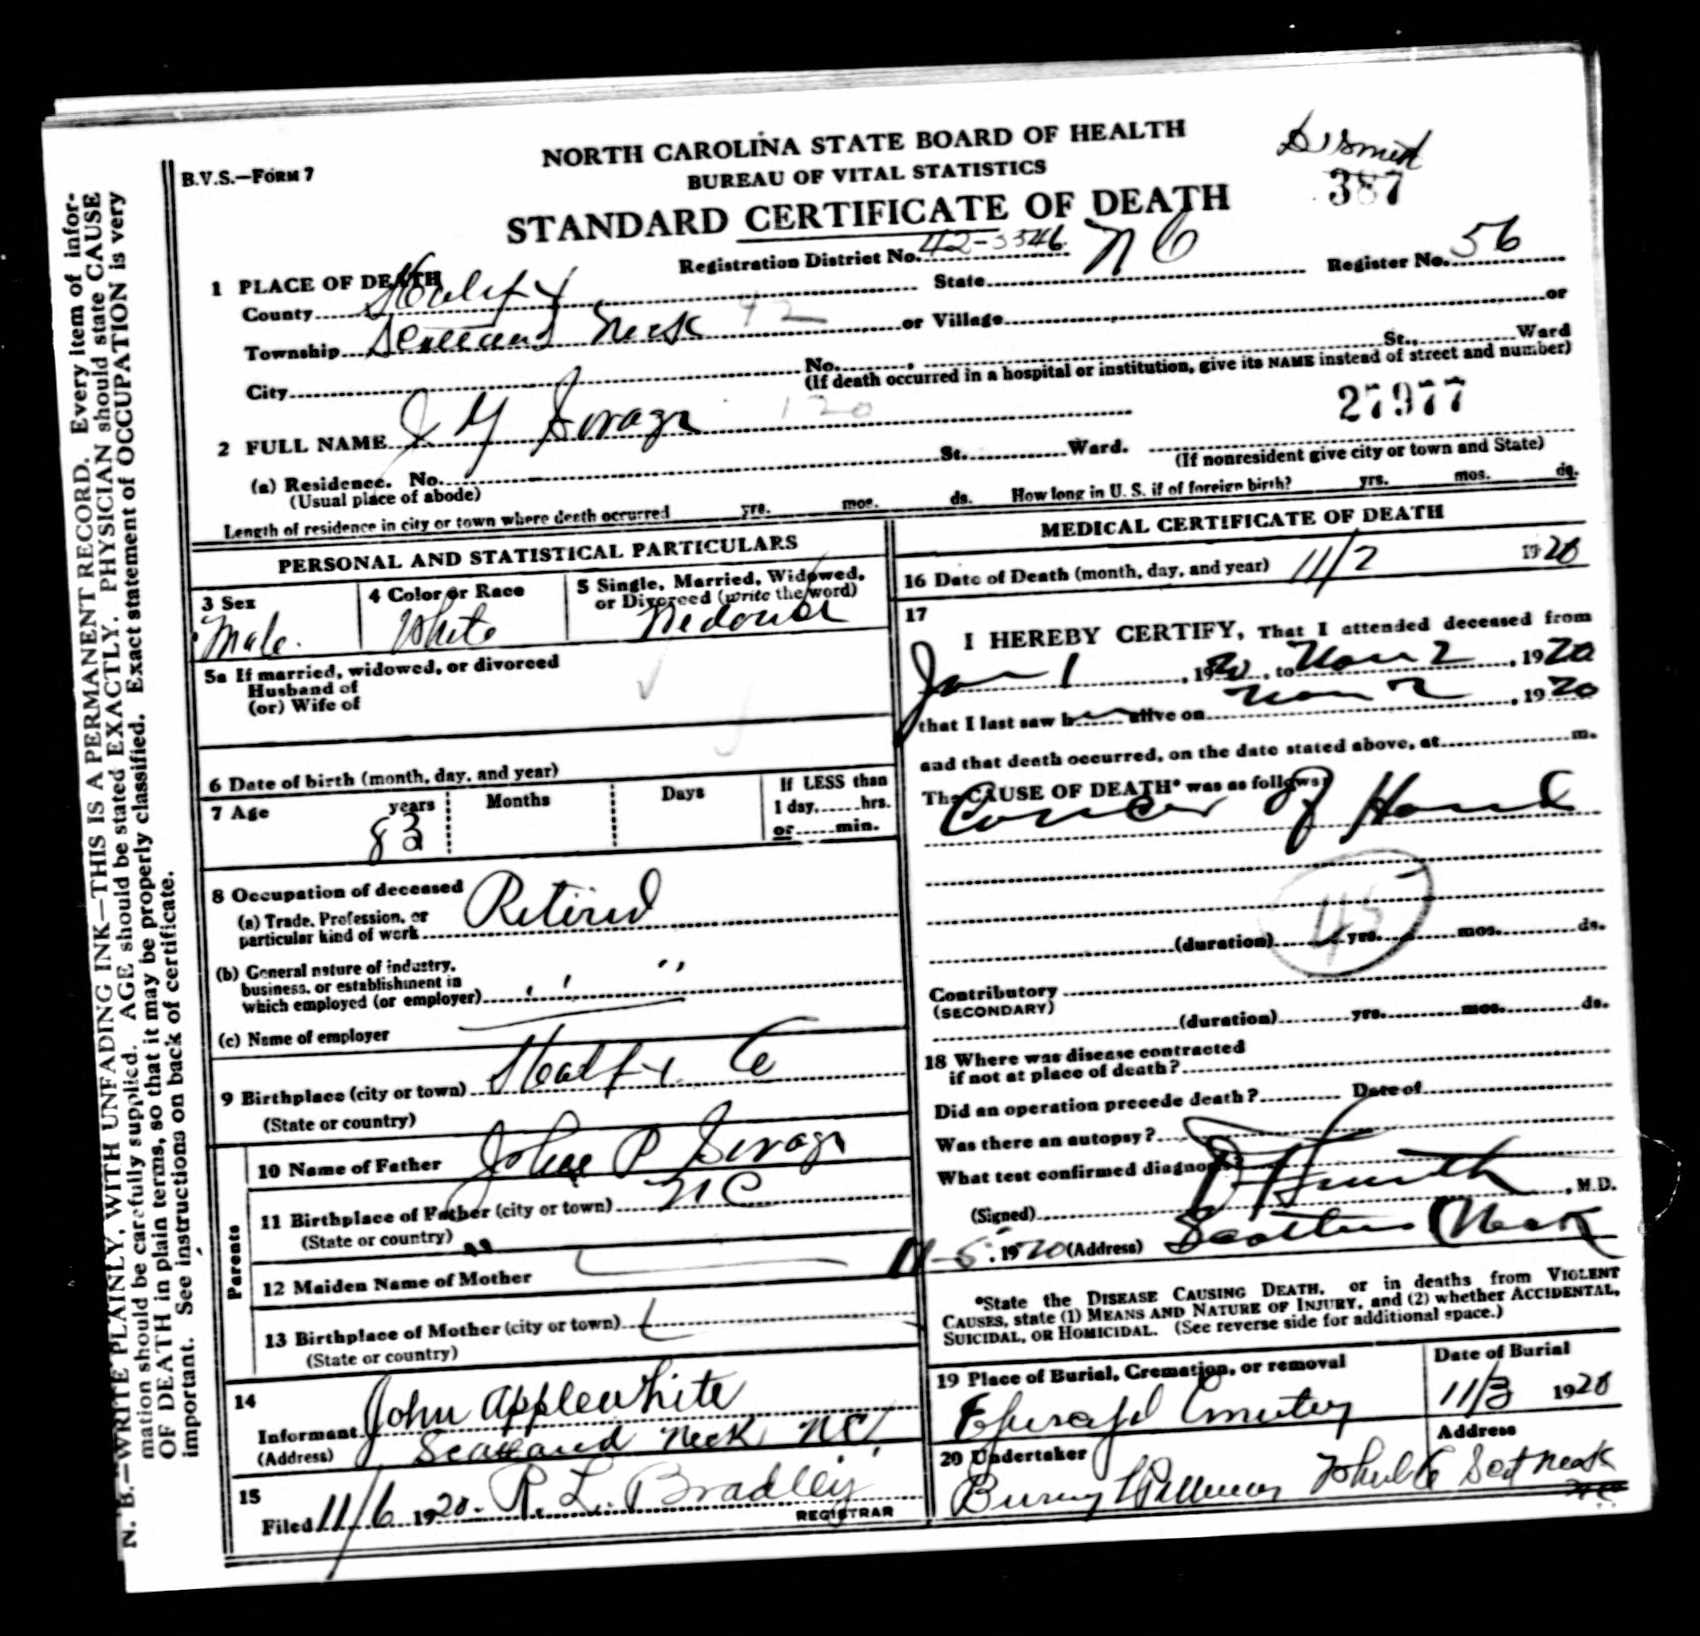 B.V.S.—FORM 7
NORTH CAROLINA STATE BOARD OF HEALTH
BUREAU OF VITAL STATISTICS
STANDARD CERTIFICATE OF DEATH
387
Registration District No. 42-3346
Register No. 56
1 PLACE OF DEATH
County Halifx State N C
Township Scotland Neck 42 or Village or
City No. St., Ward
(If death occurred in a hospital or institution, give its NAME instead of street and number)
27977
2 FULL NAME J Y
120
(a) Residence. No. St. Ward.
(Usual place of abode) (If nonresident give city or town and State)
Length of residence in city or town where death occurred yrs. mos. ds. How long in U. S. if of foreign birth? yrs. mos. ds.
PERSONAL AND STATISTICAL PARTICULARS
3 Sex 4 Color or Race 5 Single, Married, Widowed, or Divorced (write the word)
Male. White
5a If married, widowed, or divorced
Husband of
(or) Wife of
6 Date of birth (month, day, and year)
7 Age years Months Days If LESS than
83 1 day, hrs.
or min.
8 Occupation of deceased
(a) Trade, Profession, or
particular kind of work Retired
(b) General nature of industry,
business, or establishment in
which employed (or employer) " "
(c) Name of employer
9 Birthplace (city or town) Halfx Co
(State or country)
Parents
10 Name of Father John P
11 Birthplace of Father (city or town) N C
(State or country)
12 Maiden Name of Mother
13 Birthplace of Mother (city or town)
(State or country)
14
Informant John Applewhite
(Address) Scotland Neck NC
15
Filed 11/6 1920. R. L. Bradley
REGISTRAR
MEDICAL CERTIFICATE OF DEATH
16 Date of Death (month, day, and year) 11/2 1920
17
I HEREBY CERTIFY, That I attended deceased from
Jan 1, 1920, to Nov 2, 1920
that I last saw h alive on Nov 2, 1920
and that death occurred, on the date stated above, at m.
The CAUSE OF DEATH* was as follows:
Cancer of Hand
45
(duration) yrs. mos. ds.
Contributory
(SECONDARY)
(duration) yrs. mos. ds.
18 Where was disease contracted
if not at place of death?
Did an operation precede death? Date of
Was there an autopsy?
What test confirmed diagnosis?
(Signed) Smith, M.D.
11-5, 1920 (Address) Scotland Neck
*State the DISEASE CAUSING DEATH, or in deaths from VIOLENT
CAUSES, state (1) MEANS AND NATURE OF INJURY, and (2) whether ACCIDENTAL,
SUICIDAL, OR HOMICIDAL. (See reverse side for additional space.)
19 Place of Burial, Cremation, or removal Date of Burial
Cemetery 11/3 1920
20 Undertaker Address
Scot Neck
N. B.—WRITE PLAINLY, WITH UNFADING INK—THIS IS A PERMANENT RECORD. Every item of infor-
mation should be carefully supplied. AGE should be stated EXACTLY. PHYSICIAN should state CAUSE
OF DEATH in plain terms, so that it may be properly classified. Exact statement of OCCUPATION is very
important. See instructions on back of certificate.